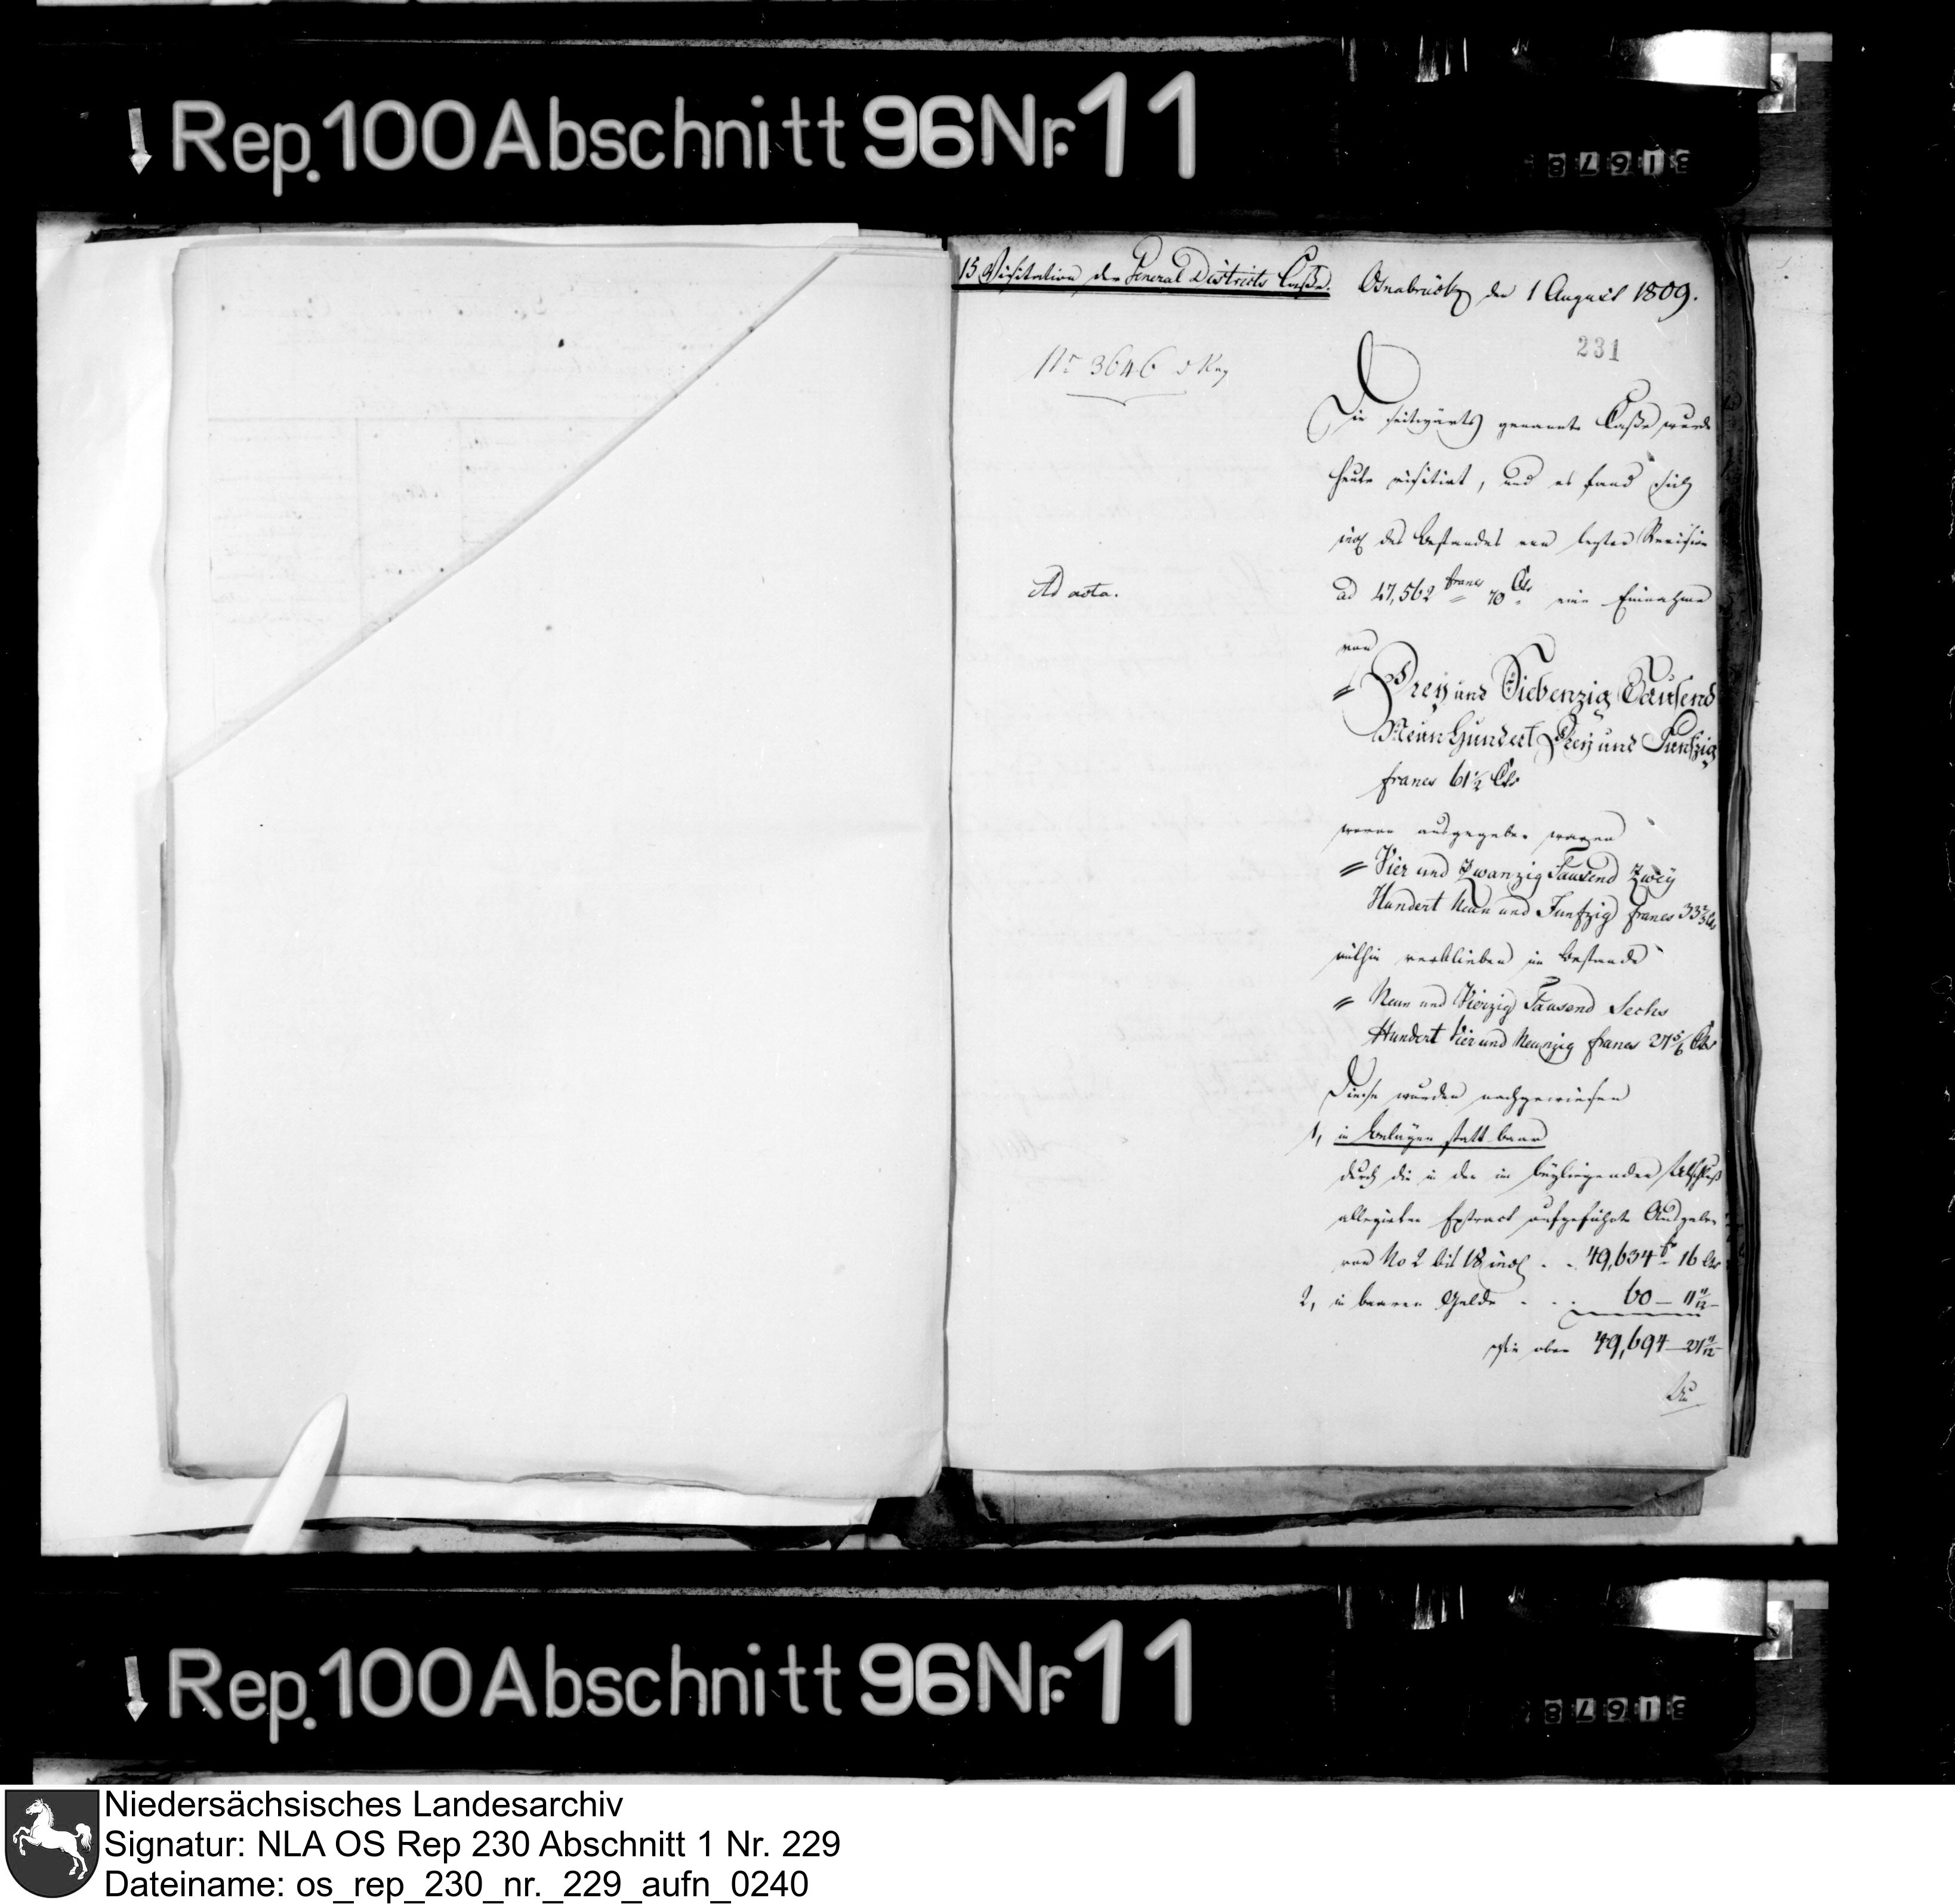 Rep. 100 Abschnitt 96 Nr. 11
31678
15 Visitation der General Districts Casse.
Osnabrück den 1 August 1809.
231
Nr 3646
Ad acta.
Die seitwärts genannte Casse wurde
heute visitirt, und es fand sich
incl des Bestandes von letzter Revision
ad 47,562 francs 70 Cts eine Einnahme
von
= Drey und Siebenzig Tausend
Neun Hundert Drey und Funfzig
francs 61½ Cts
wovon ausgegeben waren
= Vier und Zwanzig Tausend Zwey
Hundert Neun und Funfzig francs 33⅔ Cts
mithin verblieben im Bestande
= Neun und Vierzig Tausend Sechs
Hundert Vier und Neunzig francs 27 5/6 Cts
Diese wurden nachgewiesen
1, in Belägen statt baar
durch die in den im beyliegenden Abschluß
allegirten Extract aufgeführte Ausgaben
von No 2 bis 18 incl . . 49,634 fr 16 Cts
2, in baaren Gelde . . . 60 — 11 11/12 —
wie oben 49,694 — 27 11/12 —
Rep. 100 Abschnitt 96 Nr. 11
31678
Niedersächsisches Landesarchiv
Signatur: NLA OS Rep 230 Abschnitt 1 Nr. 229
Dateiname: os_rep_230_nr._229_aufn_0240